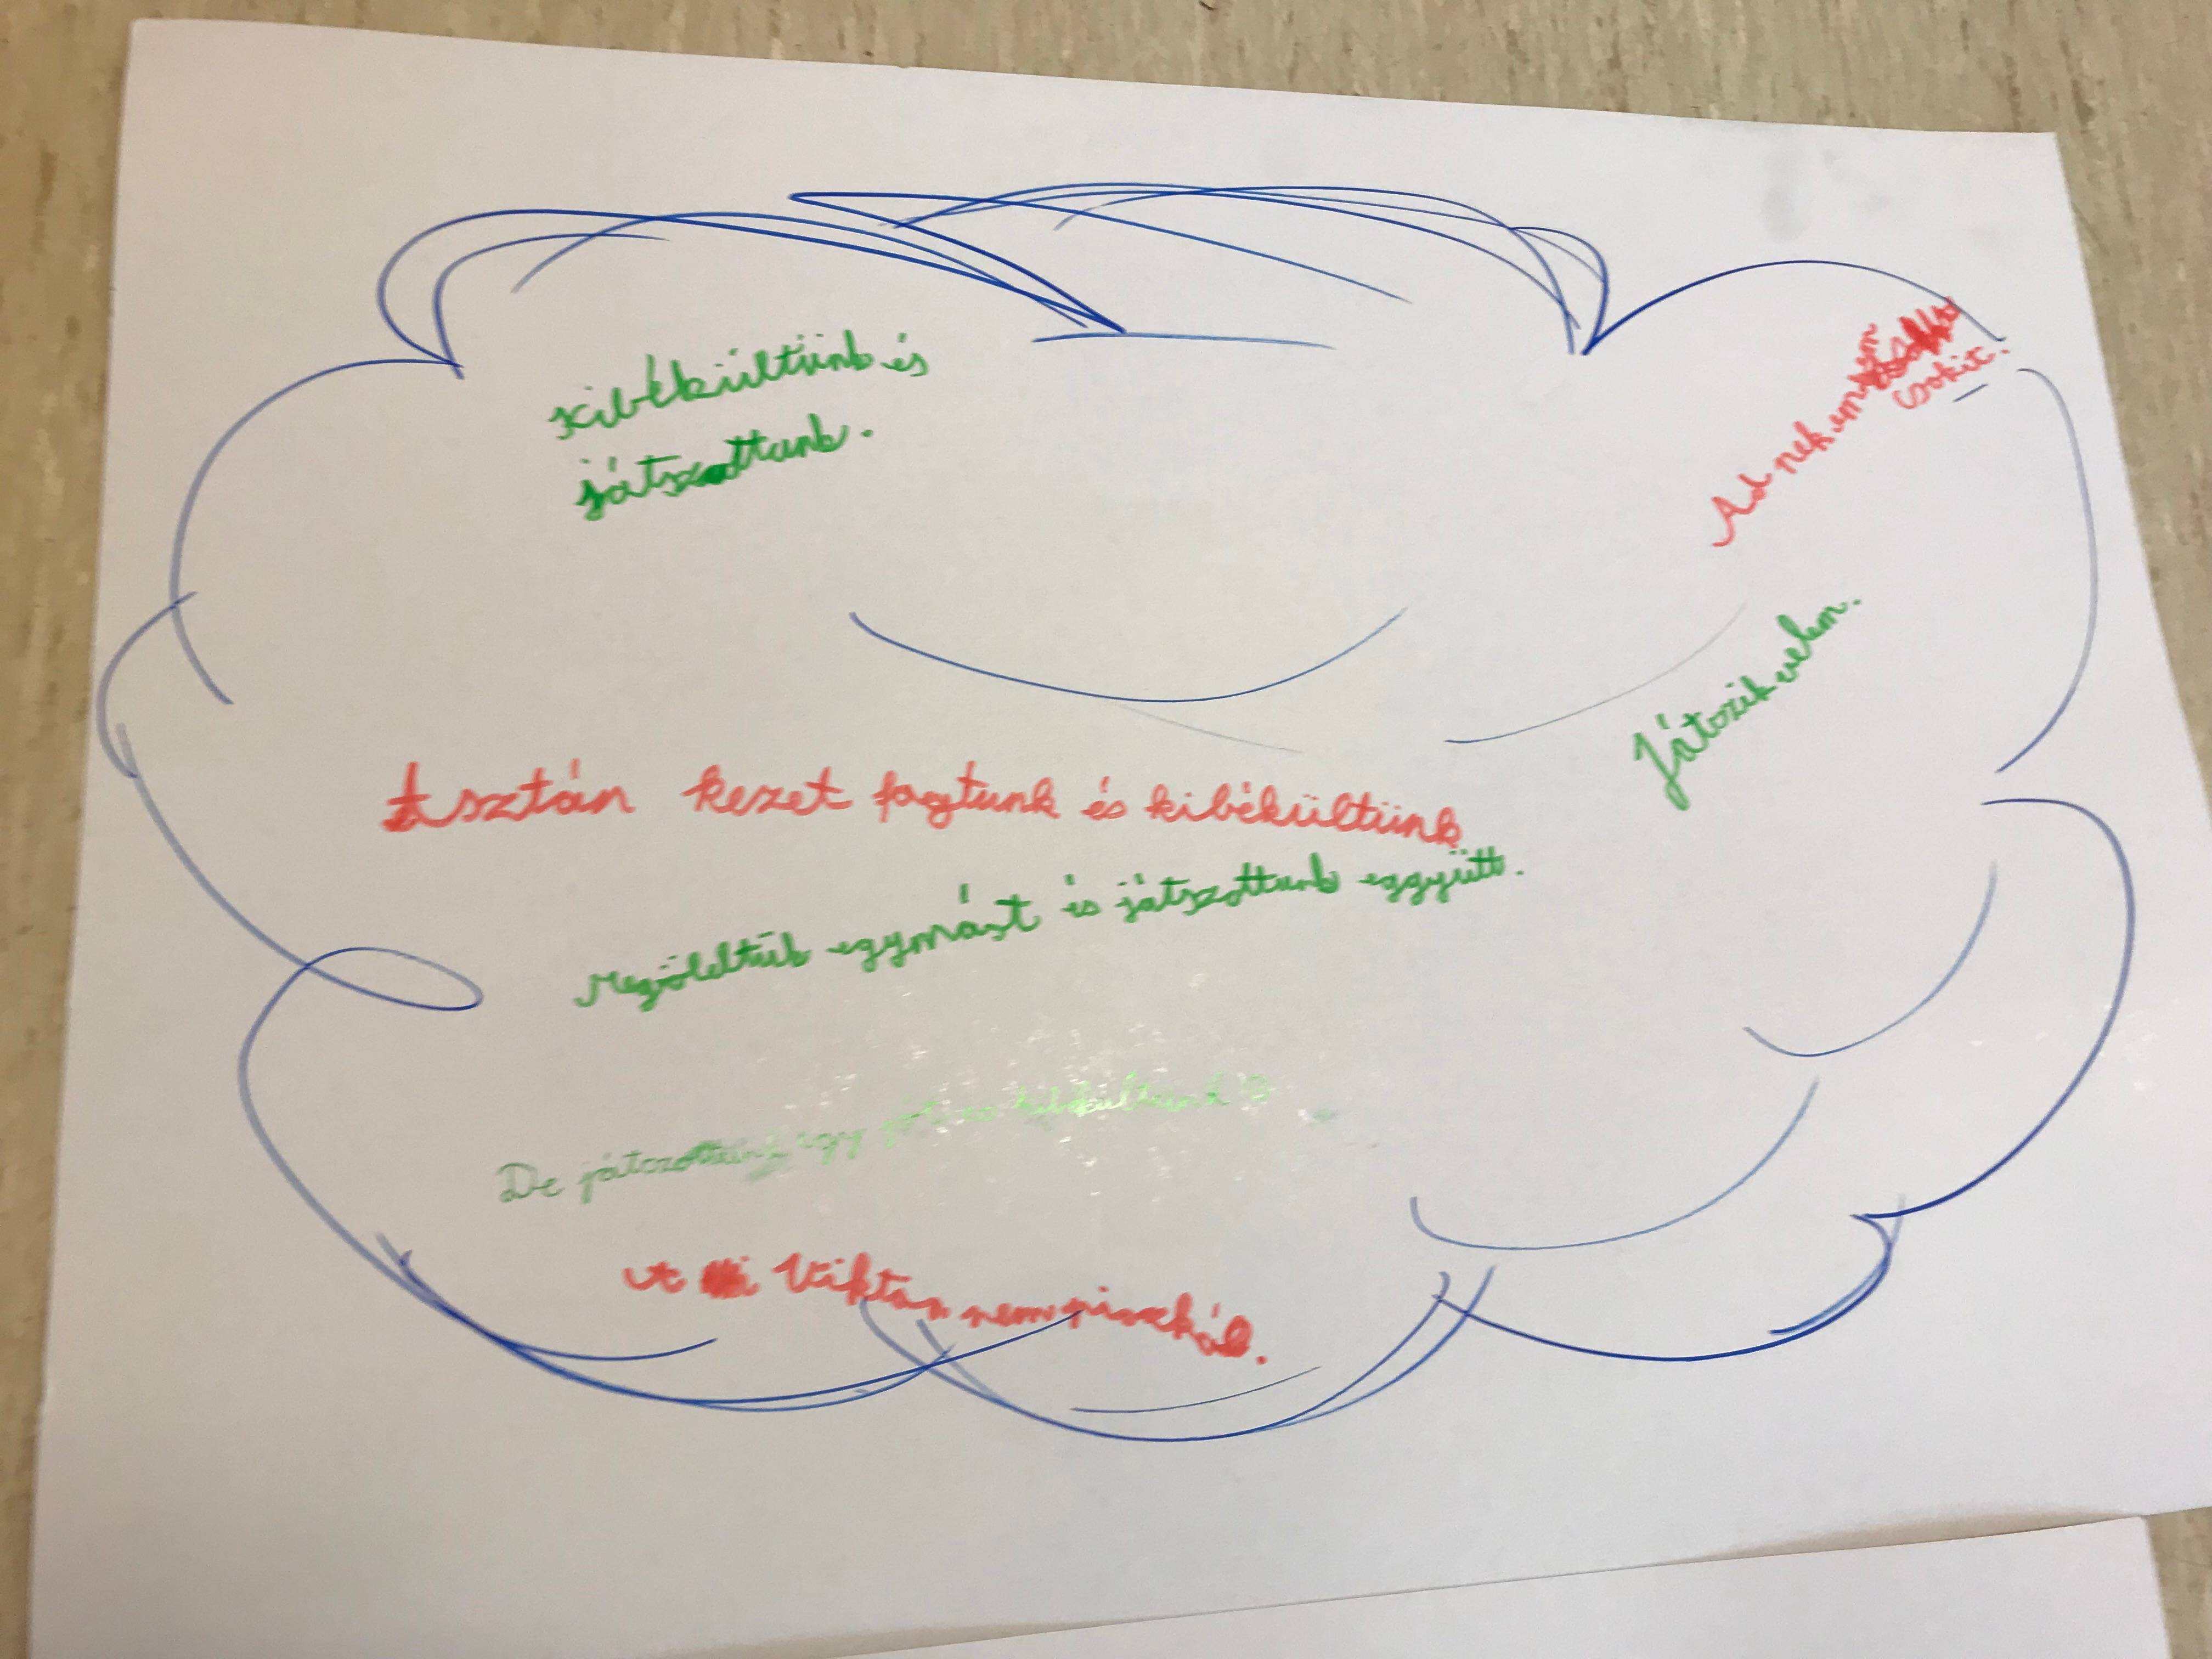 Kibékültünk és
játszottunk.
Ad nekem
csokit.
Játozik velem.
Asztán kezet fogtunk és kibékültünk
Megöleltük egymást és játszottunk eggyütt.
De játozottunk így jól kibékültünk
A Viktor nem piszkál.